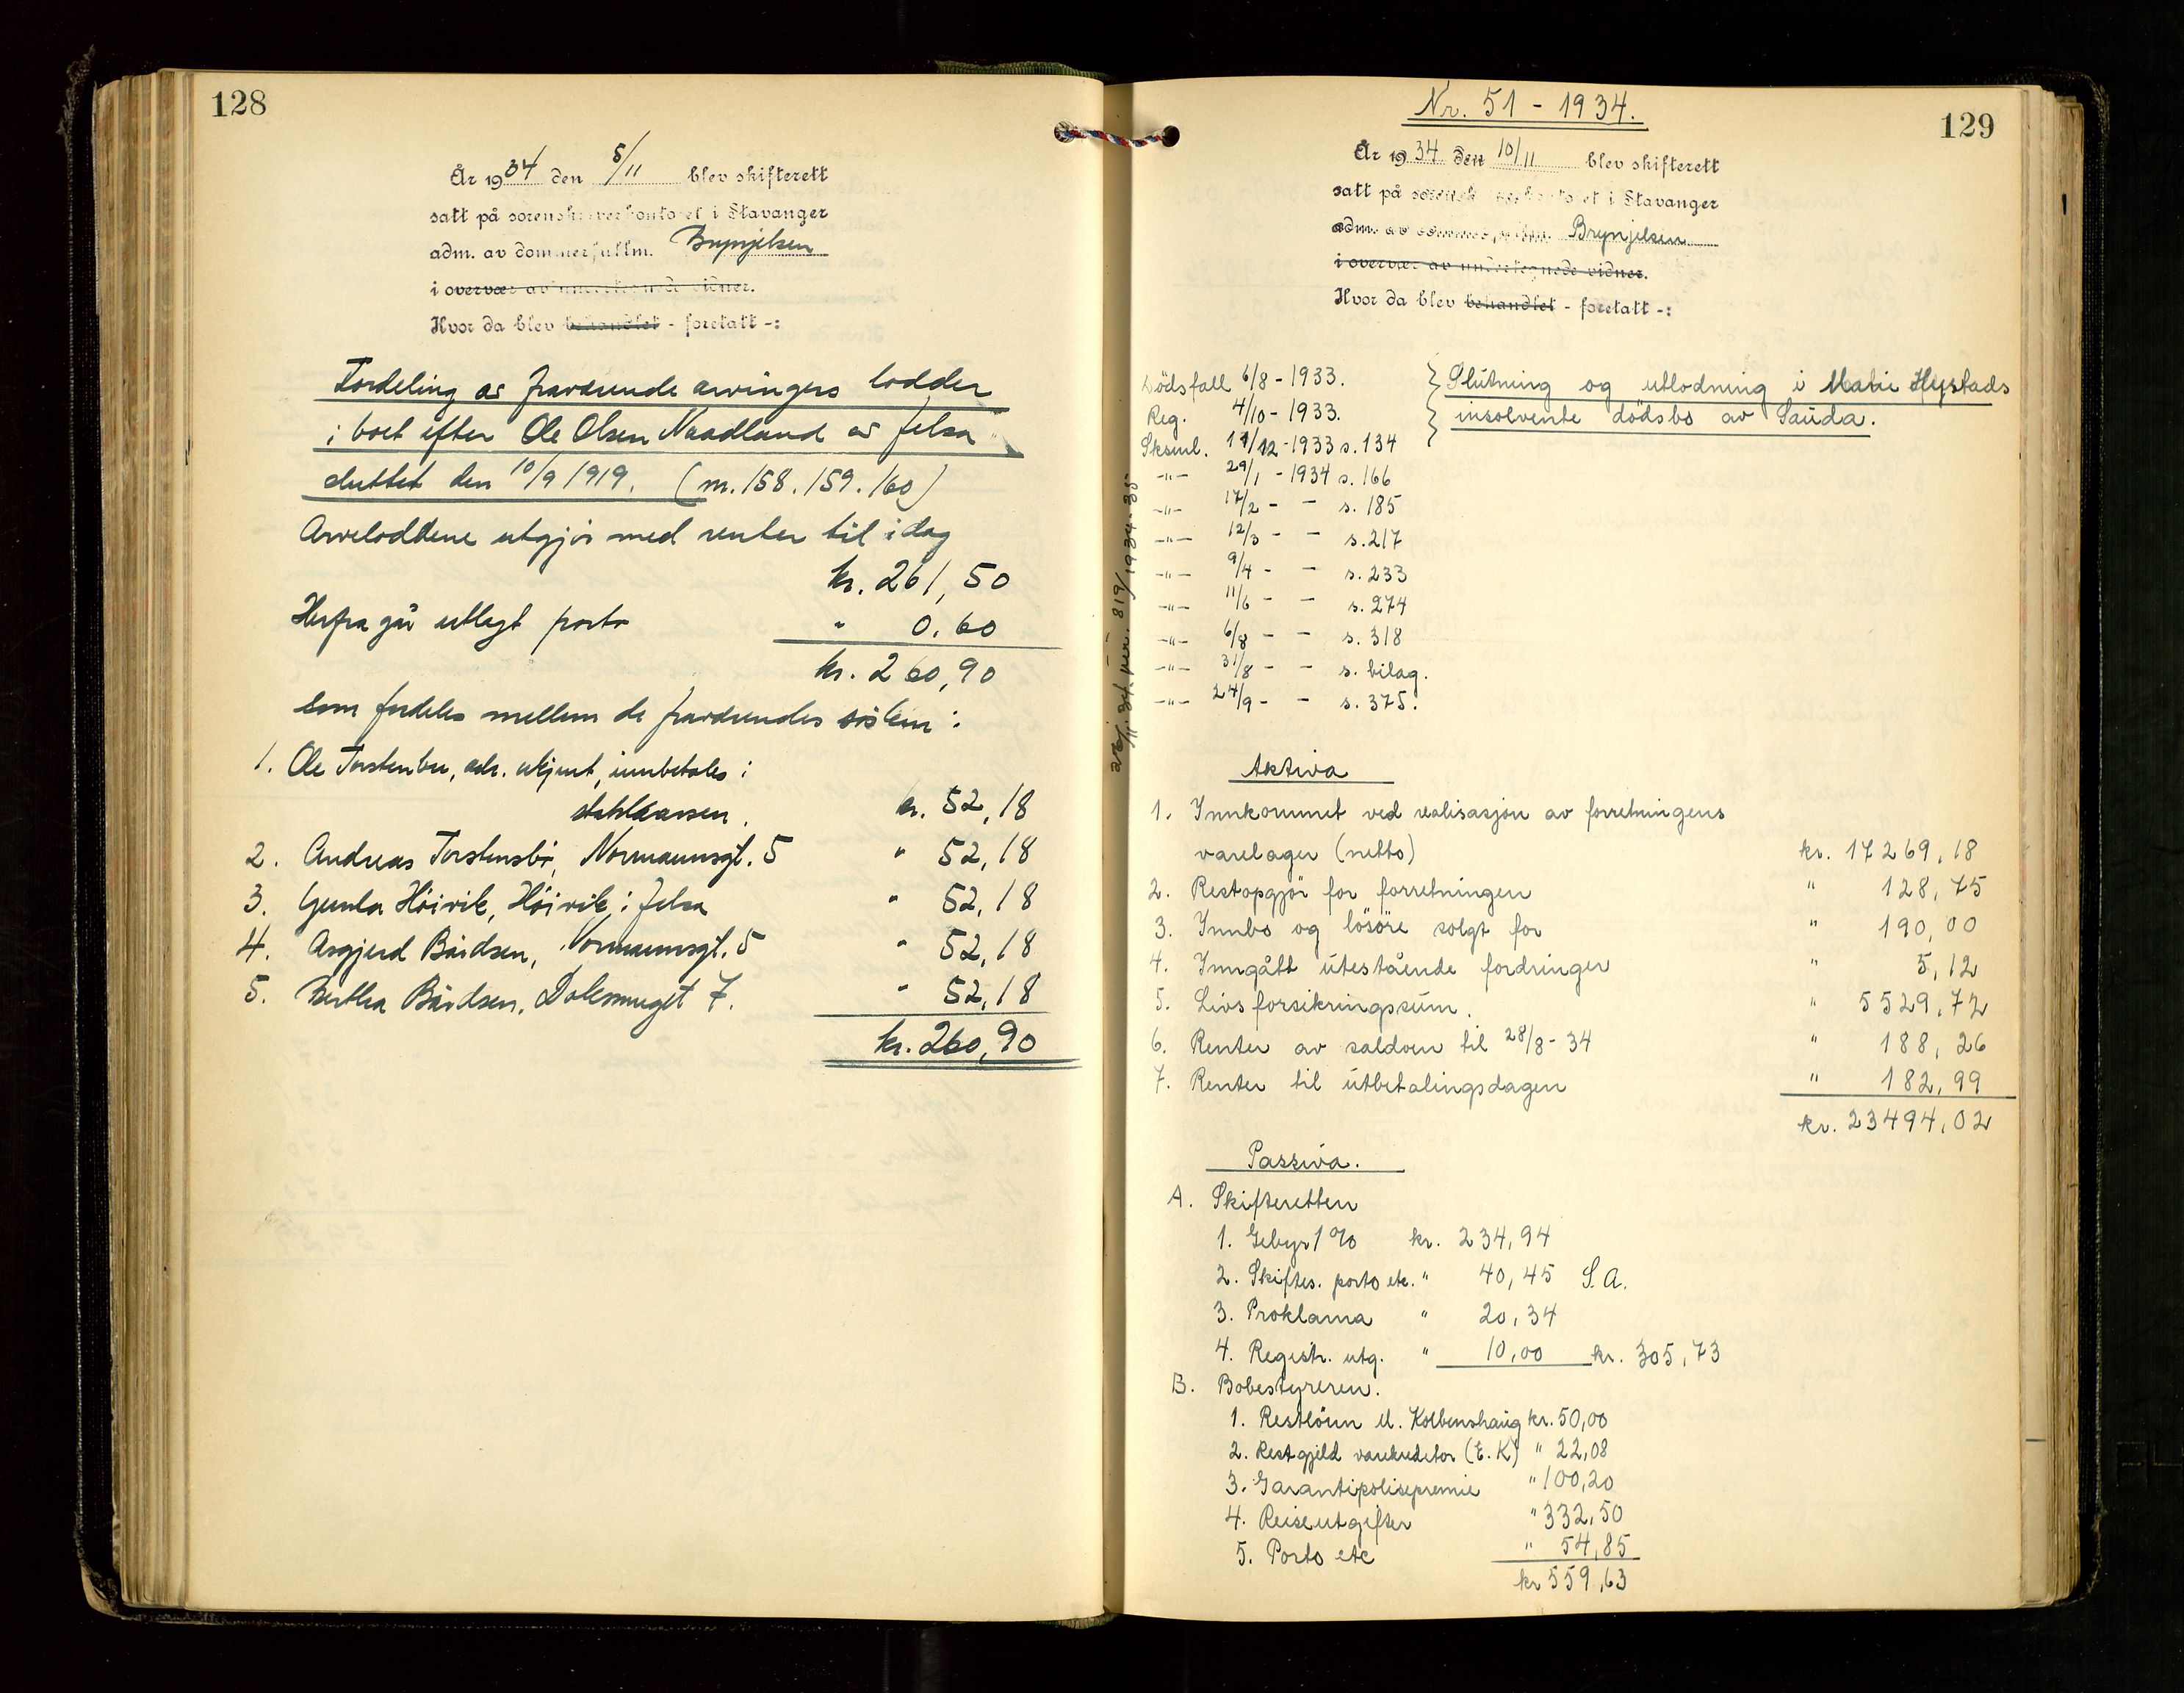 128
År 1934 den 5/11 blev skifterett
satt på sorenskriverkontoret i Stavanger
adm. av dommerfullm. Brynjelsen
i overvær av undertegnede vidner.
Hvor da blev behandlet - foretatt -:
Fordeling av fraværende arvingers lodder
i boet efter Ole Olsen Naadland av Jelsa
sluttet den 10/9 1919. (m. 158. 159. 160)
Arveloddene utgjør med renter til idag
kr. 261,50
Herfra går utlagt porto " 0.60
kr. 260,90
som fordeles mellem de fraværendes søsken:
1. Ole Torstenbu, adr. ukjent, innbetales i
statskassen. kr. 52,18
2. Andreas Torstensbø, Normannsgt. 5 " 52,18
3. Gunla Høivik, Høivik i Jelsa " 52,18
4. Asgjerd Bårdsen, Normannsgt. 5 " 52,18
5. Bertha Bårdsen, 7. " 52,18
kr. 260,90
Nr. 51 - 1934.
129
År 1934 den 10/11 blev skifterett
satt på sorenskriverkontoret i Stavanger
adm. av dommerfullm. Brynjelsen
i overvær av undertegnede vidner.
Hvor da blev behandlet - foretatt -:
Dödsfall 6/8 - 1933. } Slutning og utlodning i Matie Hystads
Reg. 4/10 - 1933. } insolvente dödsbo av Sauda.
Sksml. 11/12 - 1933 s. 134
-"- 29/1 - 1934 s. 166
-"- 17/2 - - s. 185
-"- 12/3 - - s. 217
-"- 9/4 - - s. 233
-"- 11/6 - - s. 274
-"- 6/8 - - s. 318
-"- 31/8 - - s. bilag.
-"- 24/9 - - s. 375.
819/1934-35
Aktiva
1. Innkommet ved realisasjon av forretningens
varelager (netto) kr. 17269,18
2. Restopgjör for forretningen " 128,75
3. Innbo og lösöre solgt for " 190,00
4. Inngått utestående fordringer " 5,12
5. Livsforsikringssum. " 5529,72
6. Renter av saldoen til 28/8 - 34 " 188,26
7. Renter til utbetalingsdagen " 182,99
kr. 23494,02
Passiva.
A. Skifteretten
1. Gebyr 1% kr. 234,94
2. Skiftes. porto etc. " 40,45 S.A.
3. Proklama " 20,34
4. Registr. utg. " 10,00 kr. 305,73
B. Bobestyreren.
1. Restlönn M. Kolbenshaug kr. 50,00
2. Restgjeld varekreditor (E.K) " 22,08
3. Garantipolisepremie " 100,20
4. Reiseutgifter " 332,50
5. Porto etc " 54,85
kr 559,63